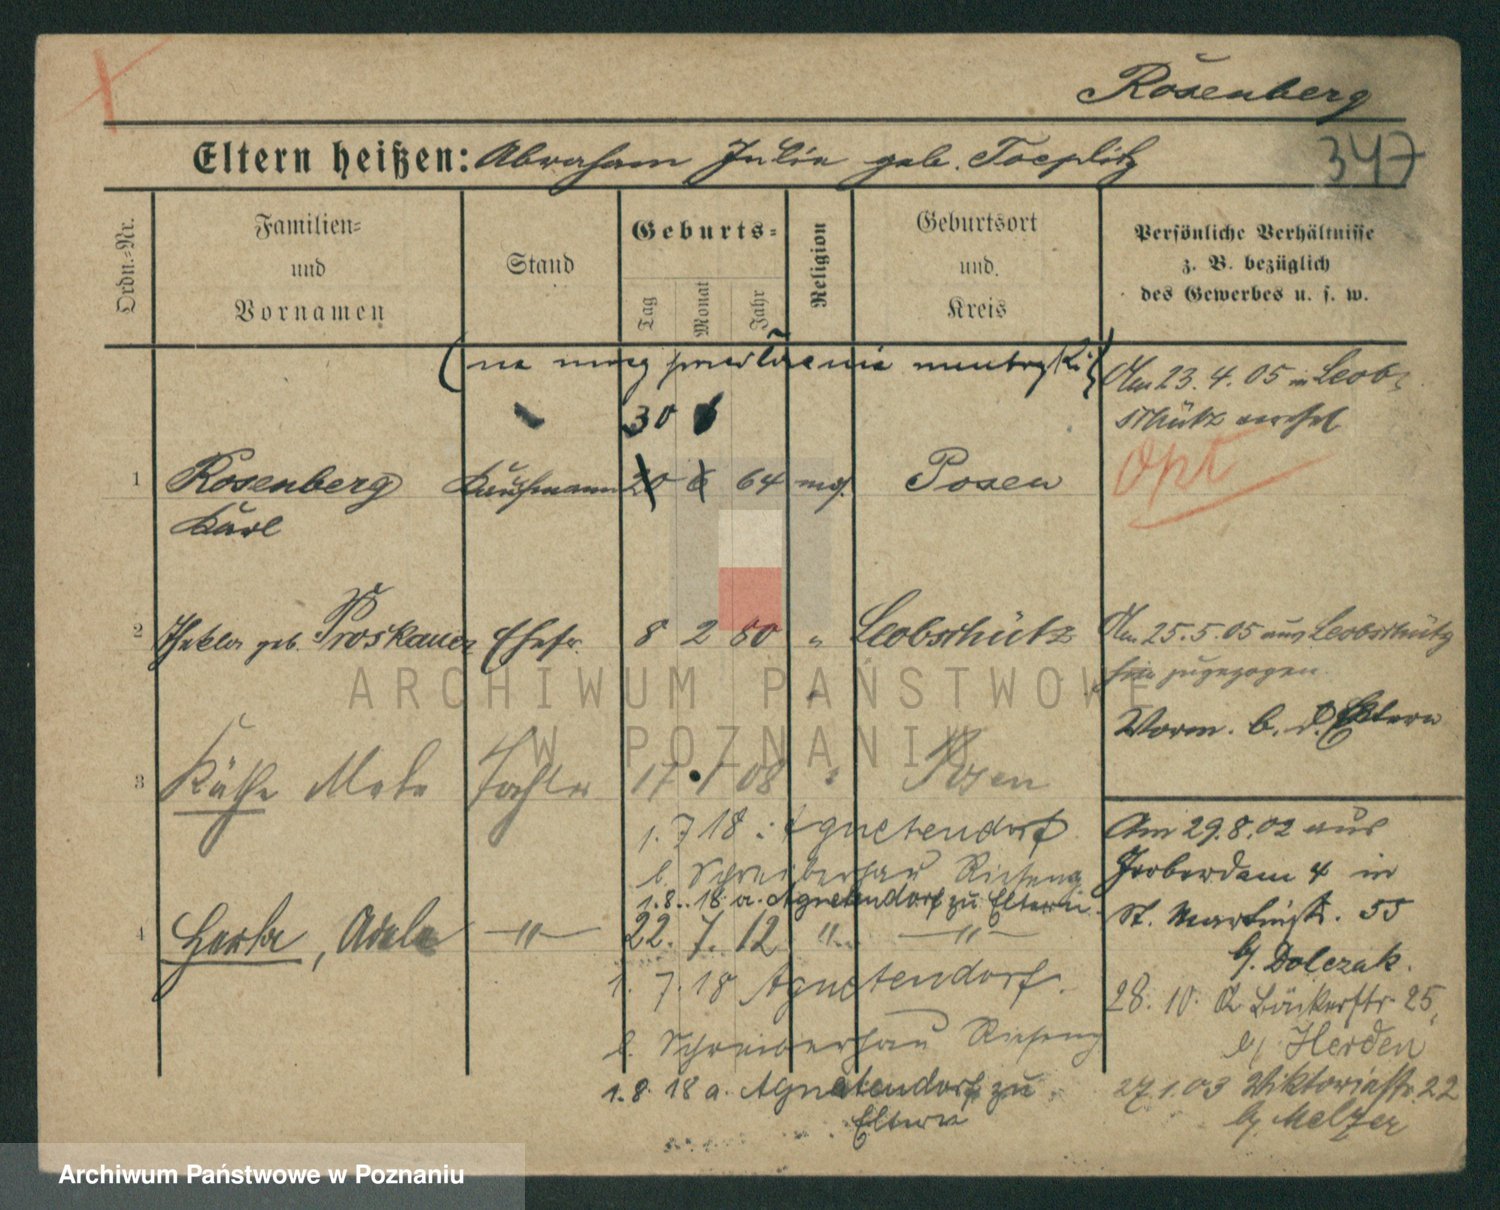 Rosenberg
347
Eltern heißen: Abraham Julie geb. Toeplitz
Ordn.-Nr.
Familien-
und
Vornamen
Stand
Geburts-
Tag
Monat
Jahr
Religion
Geburtsort
und
Kreis
Persönliche Verhältnisse
z. B. bezüglich
des Gewerbes u. s. w.
(na mocy metryki)
Am 23. 4. 05 in Leob-
schütz verehel
30 6
1 Rosenberg Kaufmann 20 6 64 mos. Posen
Karl
Opt
2 Thekla geb. Proskauer Ehefr. 8 2 80 " Leobschütz
Am 25. 5. 05 aus Leobschütz
hier zugezogen
Worm. b. d. Eltern
3 Käthe Meta Tochter 17 1 08 " Posen
1. 7 18 Agnetendorf
b. Schreiberhau Rieseng
1. 8. 18 a. Agnetendorf zu Eltern
4 Herta, Adele — " — 22. 7. 12 " — " —
1. 7. 18 Agnetendorf.
b. Schreiberhau Rieseng
1. 8. 18 a. Agnetendorf zu
Eltern
Am 29. 8. 02 aus
4 in
St. Martinstr. 55
b/. Dolczak.
28. 10. 02 Bäckerstr. 25,
b/. Herden
27. 1. 03 Viktoriastr. 22
b/. Melzer
ARCHIWUM PAŃSTWOWE
W POZNANIU
Archiwum Państwowe w Poznaniu